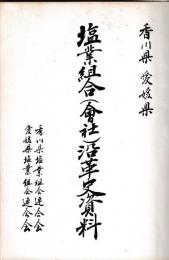 香川県 愛媛県
塩業組合(會社)沿革史資料
香川県塩業組合連合会
愛媛県塩業組合連合会